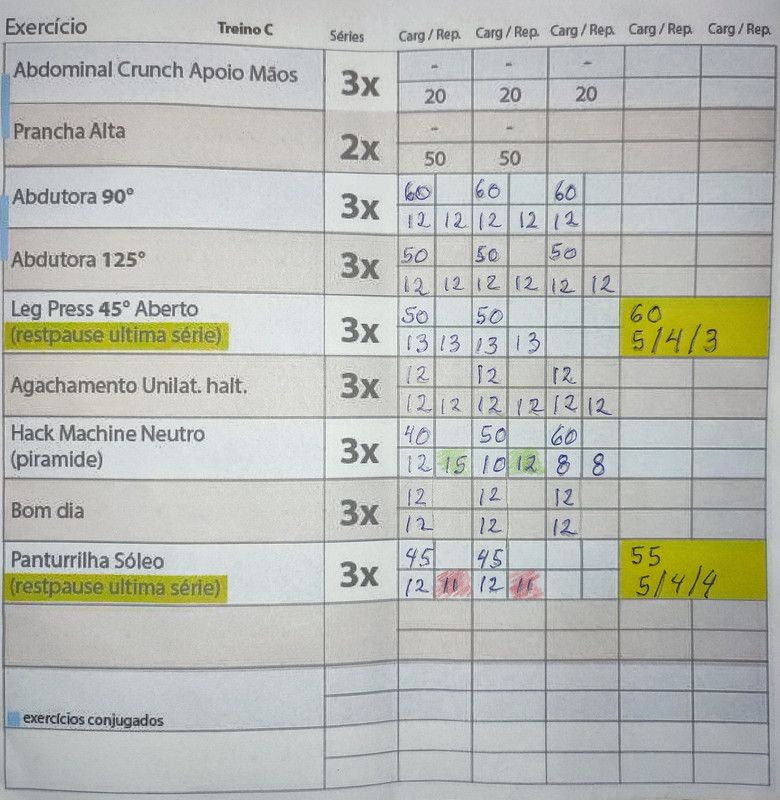 Exercício Treino C Séries Carg / Rep. Carg / Rep. Carg / Rep. Carg / Rep. Carg / Rep.
Abdominal Crunch Apoio Mãos 3x - - -
20 20 20
Prancha Alta 2x - -
50 50
Abdutora 90° 3x 60 60 60
12 12 12 12 12
Abdutora 125° 3x 50 50 50
12 12 12 12 12 12
Leg Press 45° Aberto 3x 50 50 60
(restpause ultima série) 13 13 13 13 5/4/3
Agachamento Unilat. halt. 3x 12 12 12
12 12 12 12 12 12
Hack Machine Neutro 3x 40 50 60
(piramide) 12 15 10 12 8 8
Bom dia 3x 12 12 12
12 12 12
Panturrilha Sóleo 3x 45 45 55
(restpause ultima série) 12 11 12 11 5/4/4
exercícios conjugados